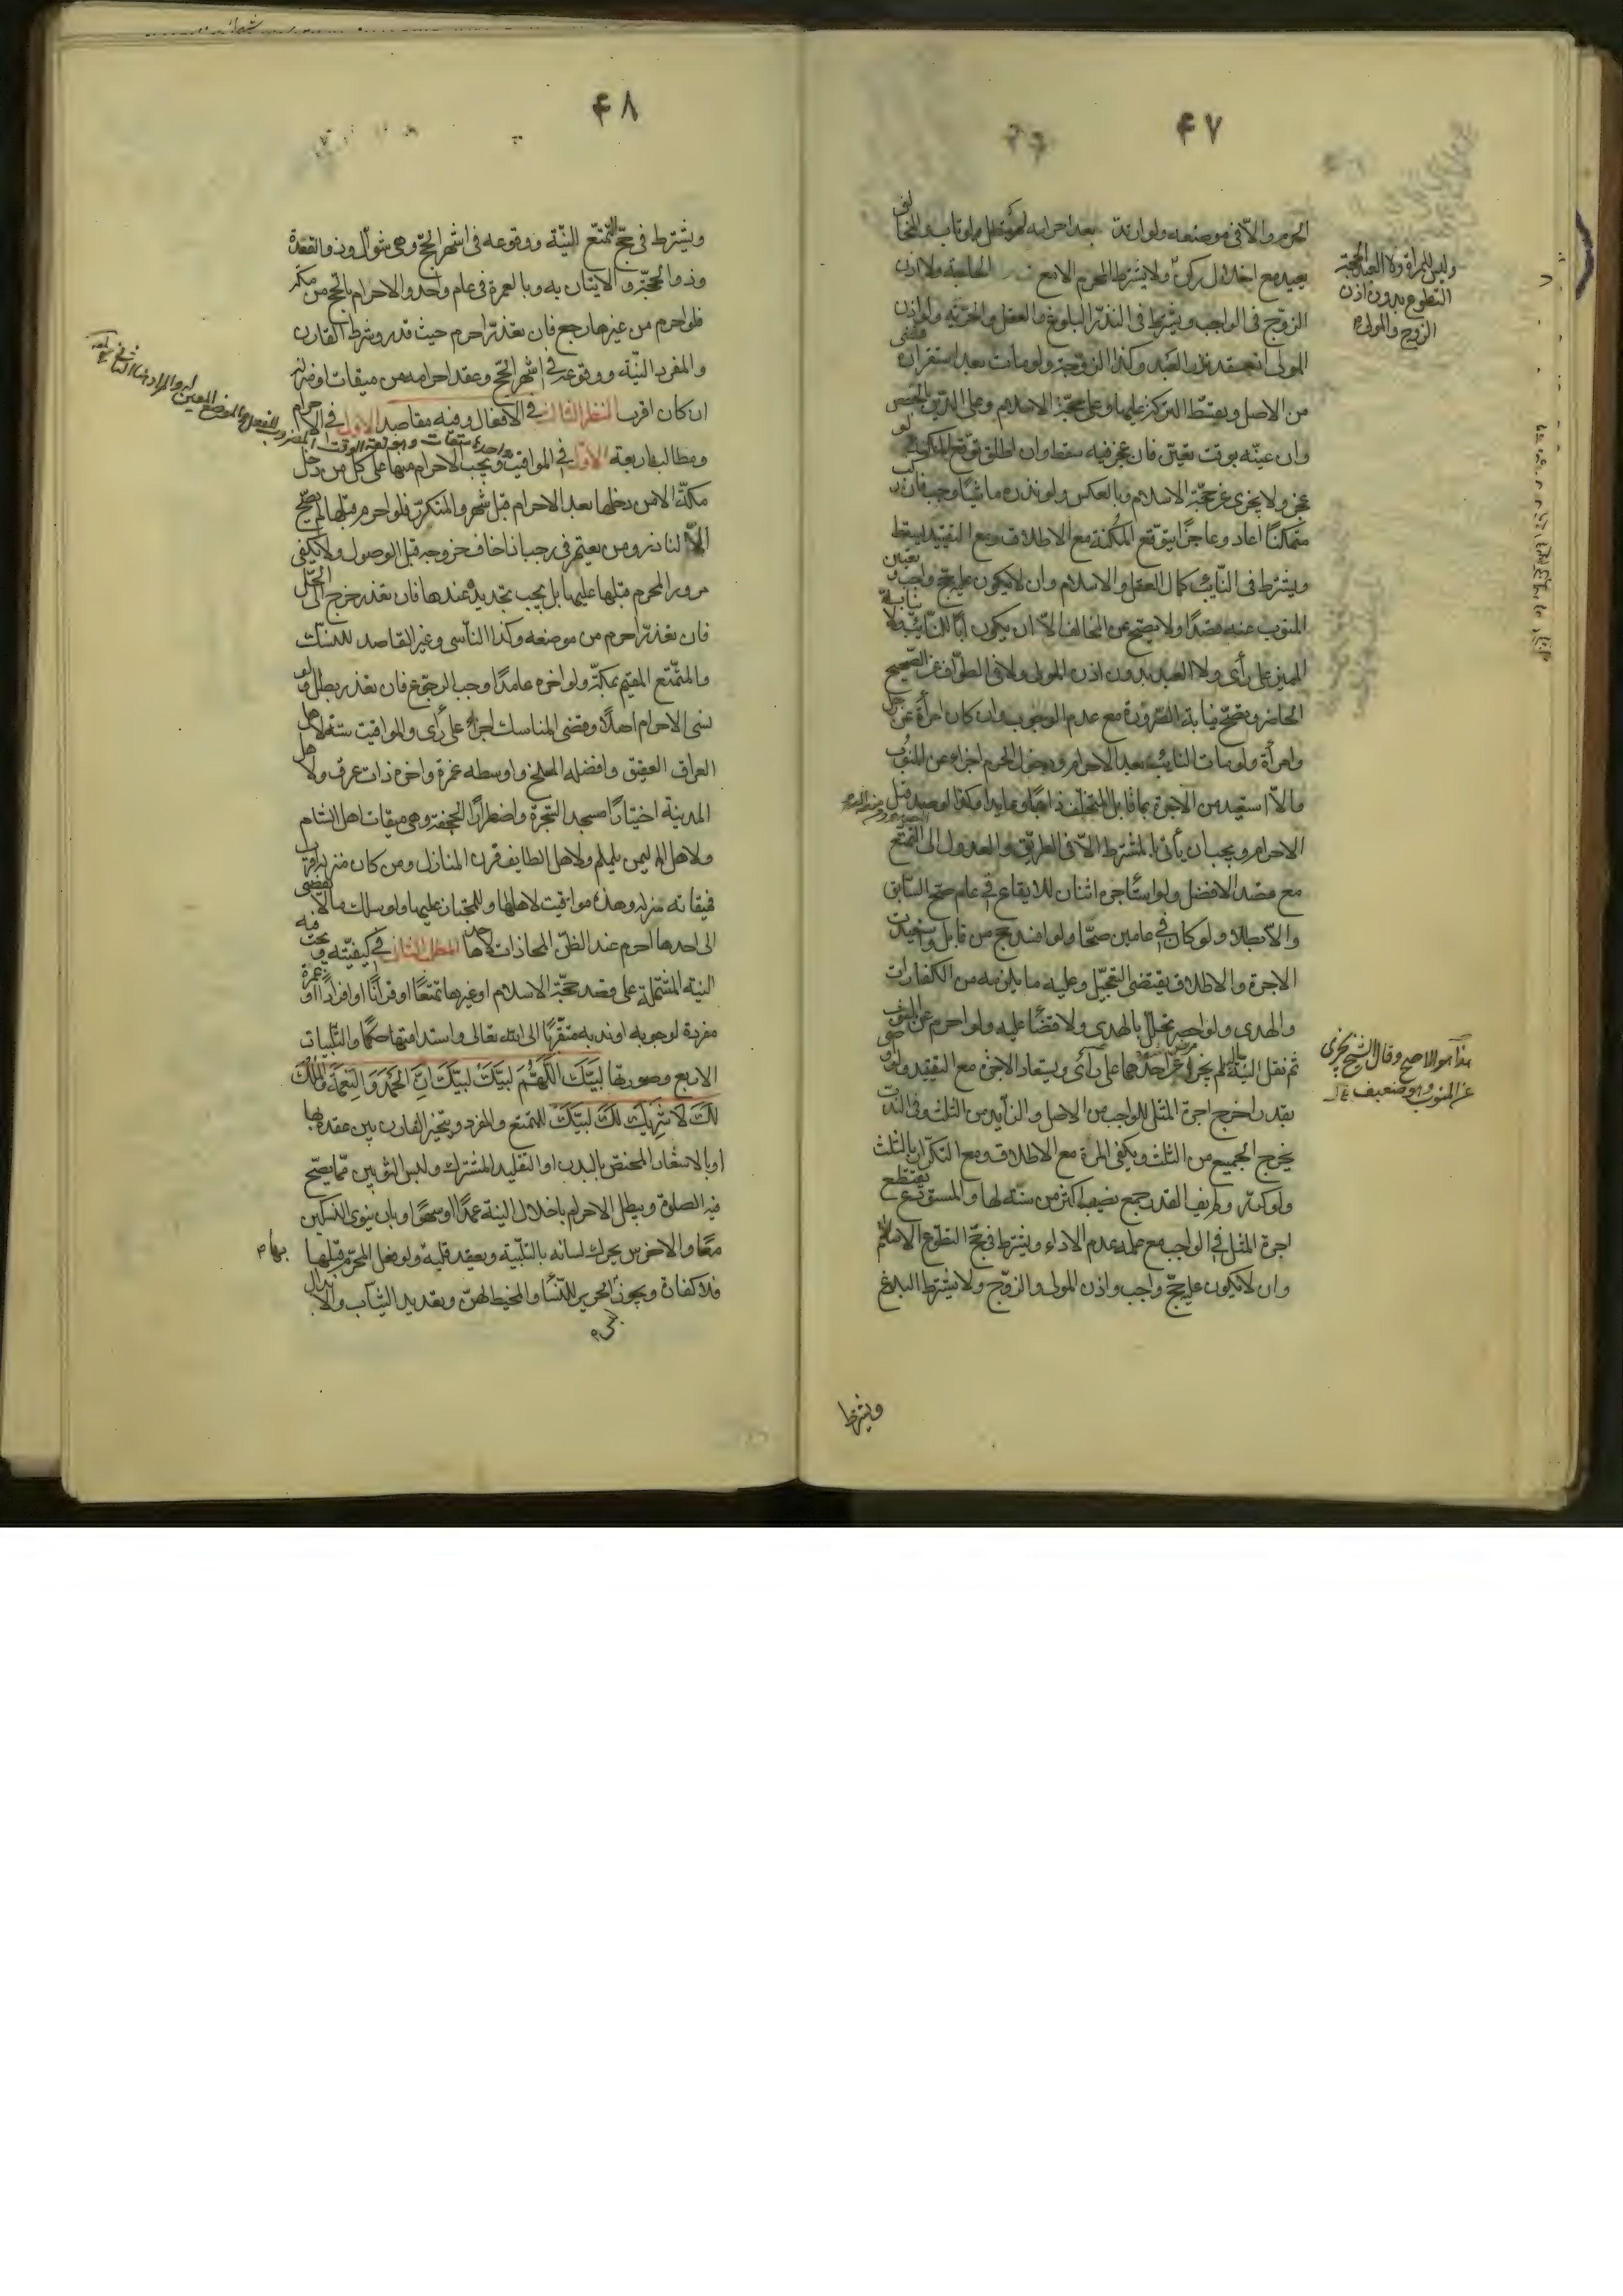 ۴۷
الحرم والا فى موضعه ولو ارتد بعد احرامه لم يبطل لو تاب والمخالف
يعيد مع اخلال ركن ولا يشترط المحرم الا مع الحاجة ولا اذن
الزوج فى الواجب ويشترط فى النذر البلوغ والعقل والحرية ولو اذن
المولى انعقد نذر العبد وكذا الزوجة ولو مات بعد استقراره قضى
من الاصل ويقسط التركة عليها وعلى حجة الاسلام وعلى الدين بالحصص
وان عينه بوقت تعين فان عجز فيه سقط وان اطلق توقع المكنة لو
عجز ولا يجزى عن حجة الاسلام وبالعكس ولو نذره ماشيا وجب فان ركب
متمكنا اعاد وعاجزا يتوقع المكنة مع الاطلاق ومع التقييد يسقط
ويشترط فى النائب كمال العقل والاسلام وان لا يكون عليه حج واجب وتعيين
المنوب عنه قصدا ولا يصح عن المخالف الا ان يكون ابا للنائب ولا نيابة
المميز على رأى ولا العبد بدون اذن المولى ولا فى الطواف عن الصحيح
الحاضر ويصح نيابة الصرورة مع عدم الوجوب وان كان امرأة عن رجل
وامرأة ولو مات النائب بعد الاحرام ودخول الحرم اجزاء عن المنوب
والا استعيد من الاجرة بما قابل المتخلف ذاهبا وعايدا وكذا لو صد قبل
الاحرام ويجب ان يأتى بالمشترط الا فى الطريق والعدول الى التمتع
مع قصد الافضل ولو استاجره اثنان للايقاع فى عام صح السابق
والا بطلا ولو كان فى عامين صحا ولو افسد حج من قابل واستعيدت
الاجرة والاطلاق يقتضى التعجيل وعليه ما يلزمه من الكفارات
والهدى ولو احصر تحلل بالهدى ولا قضاء عليه ولو احرم عن المنوب
ثم نقل النية اليه لم يجز عن احدهما على رأى ويستعاد الاجرة مع التقييد ولو اوصى
بقدر اخرج اجرة المثل للواجب من الاصل والزايد من الثلث وفى الندب
يخرج الجميع من الثلث ويكفى المرة مع الاطلاق ومع التكرار بالثلث
ولو كرر ولم يف القدر جمع نصيب اكثر من سنة لها والمستودع يقتطع
اجرة المثل فى الواجب مع علمه عدم الاداء ويشترط فى حج التطوع الاسلام
وان لا يكون عليه حج واجب واذن المولى والزوج ولا يشترط البلوغ
ويشترط
وليس للمراة ولا العبد الحجة
التطوع بدون اذن
الزوج والمولى
هذا هو الاصح وقال الشيخ يجزى
عن المنوب وهو ضعيف
۴۸
ويشترط فى حج التمتع النية ووقوعه فى اشهر الحج وهى شوال وذو القعدة
وذو الحجة والاتيان به وبالعمرة فى عام واحد والاحرام بالحج من مكة
فلو احرم من غيرها رجع فان تعذر احرم حيث قدر وشرط القارن
والمفرد النية ووقوعه فى اشهر الحج وعقد احرامه من ميقات او منزله
ان كان اقرب النظر الثالث فى الافعال وفيه مقاصد الاول فى الاحرام
ومطالبه اربعة الاول فى المواقيت ويجب الاحرام منها على كل من دخل
مكة الا من دخلها بعد الاحرام قبل شهر والمتكرر فلو احرم قبلها لم يصح
الا لناذر ومن يعتمر فى رجب اذا خاف خروجه قبل الوصول ولا يكفى
مرور المحرم قبلها عليها بل يجب تجديده عندها فان تعذر خرج الى الحل
فان تعذر احرم من موضعه وكذا الناسى وغير القاصد للنسك
والمتمتع المقيم بمكة ولو اخره عامدا وجب الرجوع فان تعذر بطل ولو
نسى الاحرام اصلا وقضى المناسك اجزأ على رأى والمواقيت ستة لاهل
العراق العقيق وافضله المسلخ واوسطه غمرة واخره ذات عرق ولاهل
المدينة اختيارا مسجد الشجرة واضطرارا الجحفة وهى ميقات اهل الشام
ولاهل اليمن يلملم ولاهل الطايف قرن المنازل ومن كان منزله اقرب
فميقاته منزله وهذه مواقيت لاهلها وللمجتاز عليها ولو سلك ما لا يفضى
الى احدها احرم عند الظن المحاذات لاحدها المطلب الثانى فى كيفيته ويجب فيه
النية المشتملة على قصد حجة الاسلام او غيرها تمتعا او قرانا او افرادا او عمرة
مفردة لوجوبه او ندبه متقربا الى الله تعالى واستدامتها حكما والتلبيات
الاربع وصورتها لبيك اللهم لبيك لبيك ان الحمد والنعمة والملك
لك لا شريك لك لبيك للمتمتع والمفرد ويتخير القارن بين عقده بها
او بالاشعار المختص بالبدن او التقليد المشترك ولبس الثوبين مما يصح
فيه الصلوة ويبطل الاحرام باخلال النية عمدا او سهوا وبان ينوى النسكين
معا والاخرس يحرك لسانه بالتلبية ويعقد قلبه ولو فعل المحرم قبلها
فلا كفارة ويجوز الحرير للنساء والمخيط لهن وتعديد الثياب والابدال